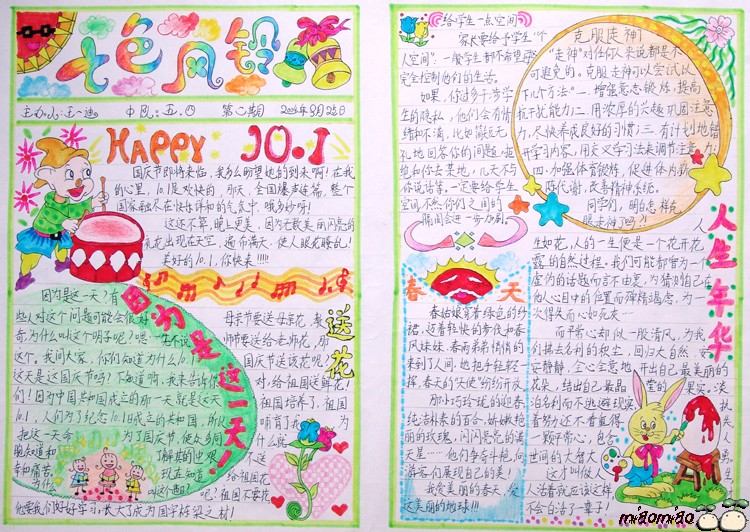 七色风铃
主办人:王一迪 中队:五.四 第二期
HAPPY 10.1
国庆节即将来临,我多么盼望她的到来啊!在我
的心里,10.1是欢快的,那天,全国爆声连篇,整个
国家融尽在快乐详和的气氛中,哦多好呀!
这还不算,晚上更美,因为无数美丽闪亮的
礼花出现在天空,遍布满天,使人眼花瞭乱!
美好的10.1,你快来!!!!!
因为是这一天!
因为是这一天?有
些人对这个问题可能会很好
奇,为什么叫这个明子呢?嗯
这个,我问大家,你们知道为什么10.1
这天是这国庆节吗?不知道啊,我来告诉你
们!因为中国共和国成立的那一天就是这天
10.1,人们为了纪念10.1日成立的共和国,所以
把这一天命为了国庆节,使众多同
胞知道和了解其中的
和痛苦,现在知道
为什么叫这个题
吧!
送花
母亲节要送母亲花,教
师节要送给老师花,那
国庆节送该花呢?
对,给祖国送鲜花!
祖国培养了,祖国
哺育了
什么
不送
给祖国
呢?祖国不要花
他要我们好好学习,长大了成为国家栋梁之材!
给学生一点空间
家长要给予学生“个
人空间”:一般学生都不希望
完全控制他们的生活。
如果,你过多干涉学
生的隐私,他们会有情
绪和不满,比如情跃无
礼地回答你的问题,
给和你去某地,几天不与
你说话等,一定要给学生
空间,不然你们之间的
隔间会进一步加剧。
克服走神
“走神”对任何人来说都是不
可避免的。克服走神可以尝试以
下几个方法“一.增强意志锻炼,提高
抗干扰能力;二.用浓厚的兴趣巩固注意
力,尽快养成良好的习惯;三.有计划地错
开学习内容,用交叉学习法来调节注意力;
四.加强体育锻炼,促进体内新
陈代谢,改善精神系统。
同学们,明白怎样克
服走神了吗?!
春天
春姑娘穿着绿色的纱
裙,迈着轻快的步伐和春
风妹妹、春雨弟弟悄悄的
来到了人间,她把手轻轻一
挥,春天的“天使”纷纷开放
那小巧玲珑的迎春,
纯洁朴素的百合,娇嫩艳
丽的玫瑰,闪闪亮亮的满
天星……他们争奇斗艳,向
游客们展现自己的美!
我爱美丽的春天,爱
这美丽的地球!!!
人生年华
人
生如花,人的一生便是一个花开花
露的自然过程。我们可能都曾为一个
虚伪的话题而言不由衷,为猜测自己在
他人心目中的位置而殚精竭虑,为一
次得失而心如死灰…
而平常心却似一股清风,为我
们拂去名利的积尘,回归大自然,安
安静静,全心全意地开出自己最美丽的
花朵,结出自己最晶莹的果实;淡
泊名利而不逃避现实,扶
着努力还不看重得失,
一颗平常心,包含人
世间的大智大勇。
这才叫做人生,
人活着就应该这样,
不会白活了一辈子!
miaomiao